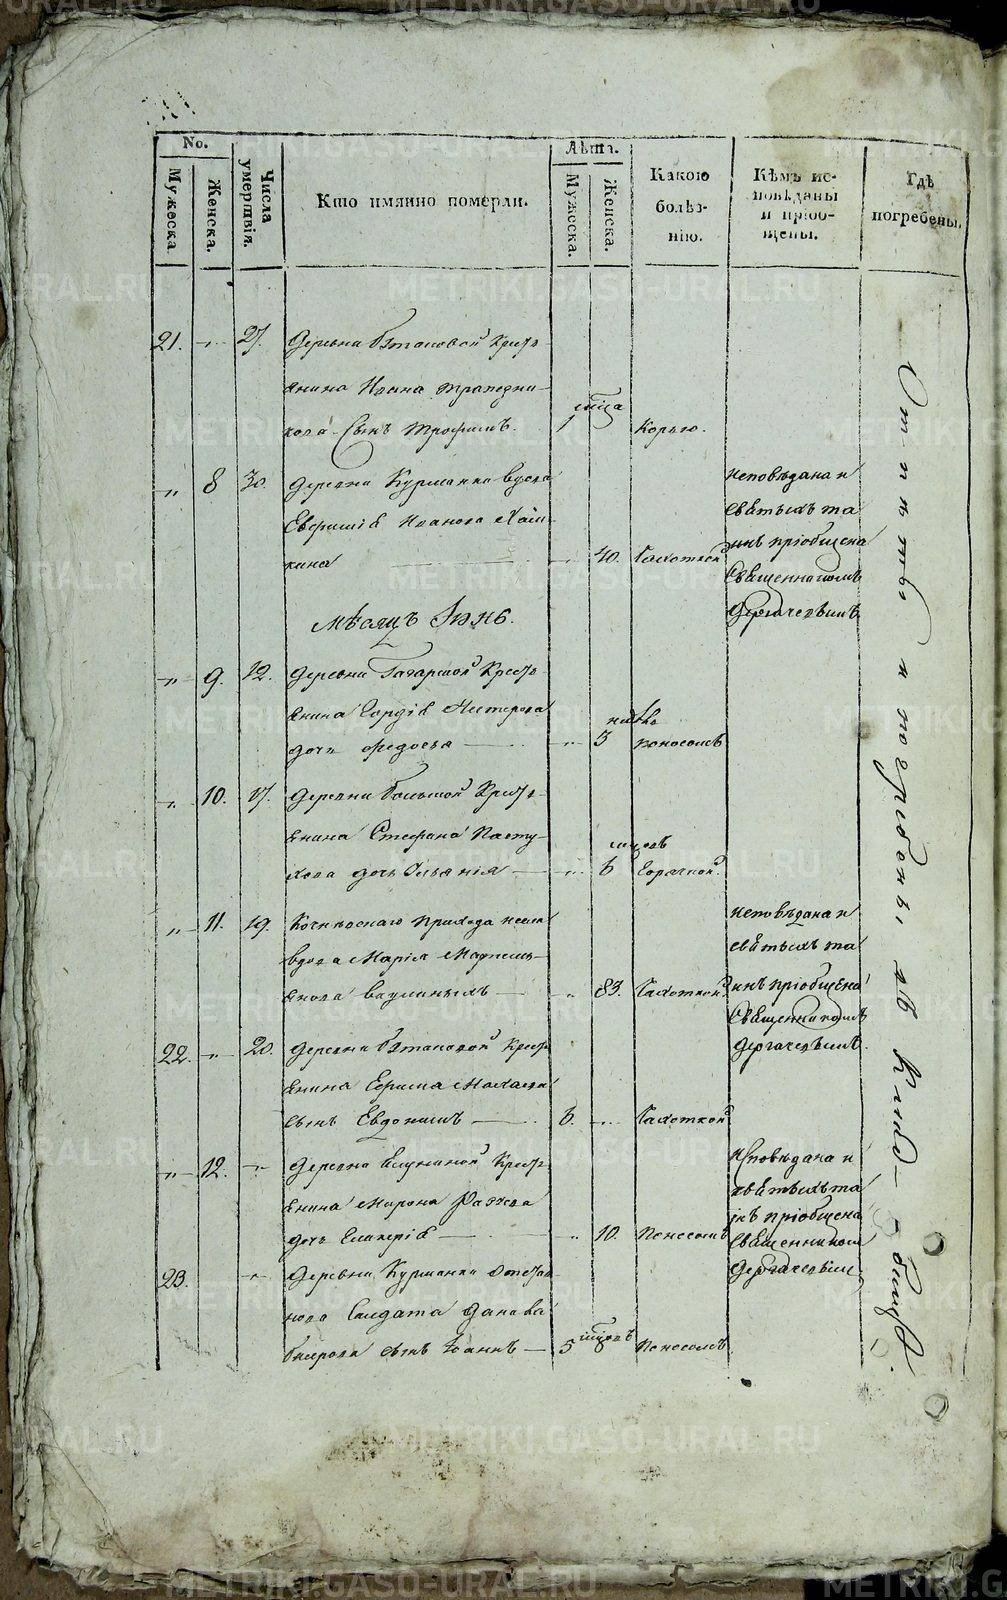 No.
Мужеска.
Женска.
Числа умертвія.
Кто имянно померли.
Лѣта.
Мужеска.
Женска.
Какою болѣз-
нію.
Кѣмъ ис-
повѣданы
и пріоб-
щены.
Гдѣ
погребены.
21. " 27. Деревни Крестъ
янина Ивана Трапезни-
кова Сынъ Трофимъ. 1 мѣсца Корью.
" 8 30. Деревни Курманки вдова
Евфимія Иванова
кина 40. Чахоткой
исповѣдана и
святыхъ та
инъ пріобщена
Священникомъ
Дергачевымъ
Мѣсяцъ Іюнь.
" 9. 12. Деревни Гагарской Крестъ
янина Нестерова
дочь Федосья " 3 недѣль поносомъ
" 10. 17. Деревни Крестъ
янина Стефана Пасту-
хова дочь " 6 мцовъ Горячкой.
" 11. 19. Кочневскаго прихода
вдова Марія
83. Чахоткой
исповѣдана и
святыхъ та
инъ пріобщена
Священникомъ
Дергачевымъ.
22. " 20. Деревни Крест
янина
сынъ Евдокимъ 6. " Чахоткой
" 12. " Деревни Крестъ
янина Мирона
дочь Гликерія " 10. Поносомъ
исповѣдана и
святыхъ та
инъ пріобщена
Священникомъ
Дергачевымъ
23. " Деревни Курманки отстав
нова Салдата
сынъ Іоаннъ 5 мцовъ Поносомъ
Отпѣты и погребены въ клад-
бищѣ.
METRIKI.GASO-URAL.RU